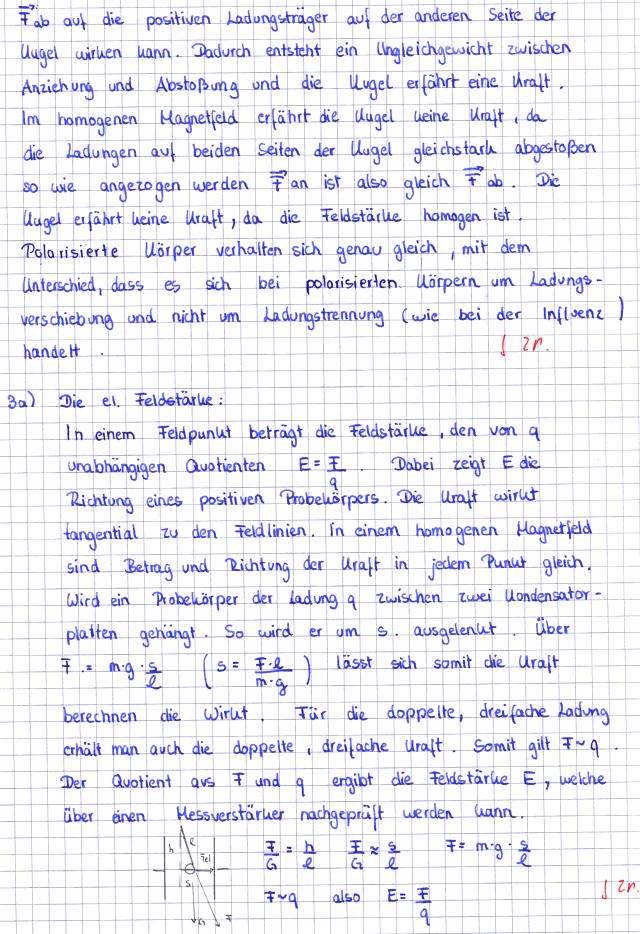 F ab auf die positiven Ladungsträger auf der anderen Seite der
Kugel wirken kann. Dadurch entsteht ein Ungleichgewicht zwischen
Anziehung und Abstoßung und die Kugel erfährt eine Kraft.
Im homogenen Magnetfeld erfährt die Kugel keine Kraft, da
die Ladungen auf beiden Seiten der Kugel gleichstark abgestoßen
so wie angezogen werden F an ist also gleich F ab. Die
Kugel erfährt keine Kraft, da die Feldstärke homogen ist.
Polarisierte Körper verhalten sich genau gleich, mit dem
Unterschied, dass es sich bei polarisierten Körpern um Ladungs-
verschiebung und nicht um Ladungstrennung (wie bei der Influenz)
handelt.
∫ 2r.
3a) Die el. Feldstärke:
In einem Feldpunkt beträgt die Feldstärke, den von q
unabhängigen Quotienten E = F/q. Dabei zeigt E die
Richtung eines positiven Probekörpers. Die Kraft wirkt
tangential zu den Feldlinien. In einem homogenen Magnetfeld
sind Betrag und Richtung der Kraft in jedem Punkt gleich.
Wird ein Probekörper der Ladung q zwischen zwei Kondensator-
platten gehängt. So wird er um s. ausgelenkt. Über
F .= m·g·s/l (s = F·l/m·g) lässt sich somit die Kraft
berechnen die wirkt. Für die doppelte, dreifache Ladung
erhält man auch die doppelte, dreifache Kraft. Somit gilt F~q.
Der Quotient aus F und q ergibt die Feldstärke E, welche
über einen Messverstärker nachgeprüft werden kann.
h l Fel
F/G = h/l F/G ≈ s/l F = m·g·s/l
s
F~q also E = F/q
G F
∫ 2r.